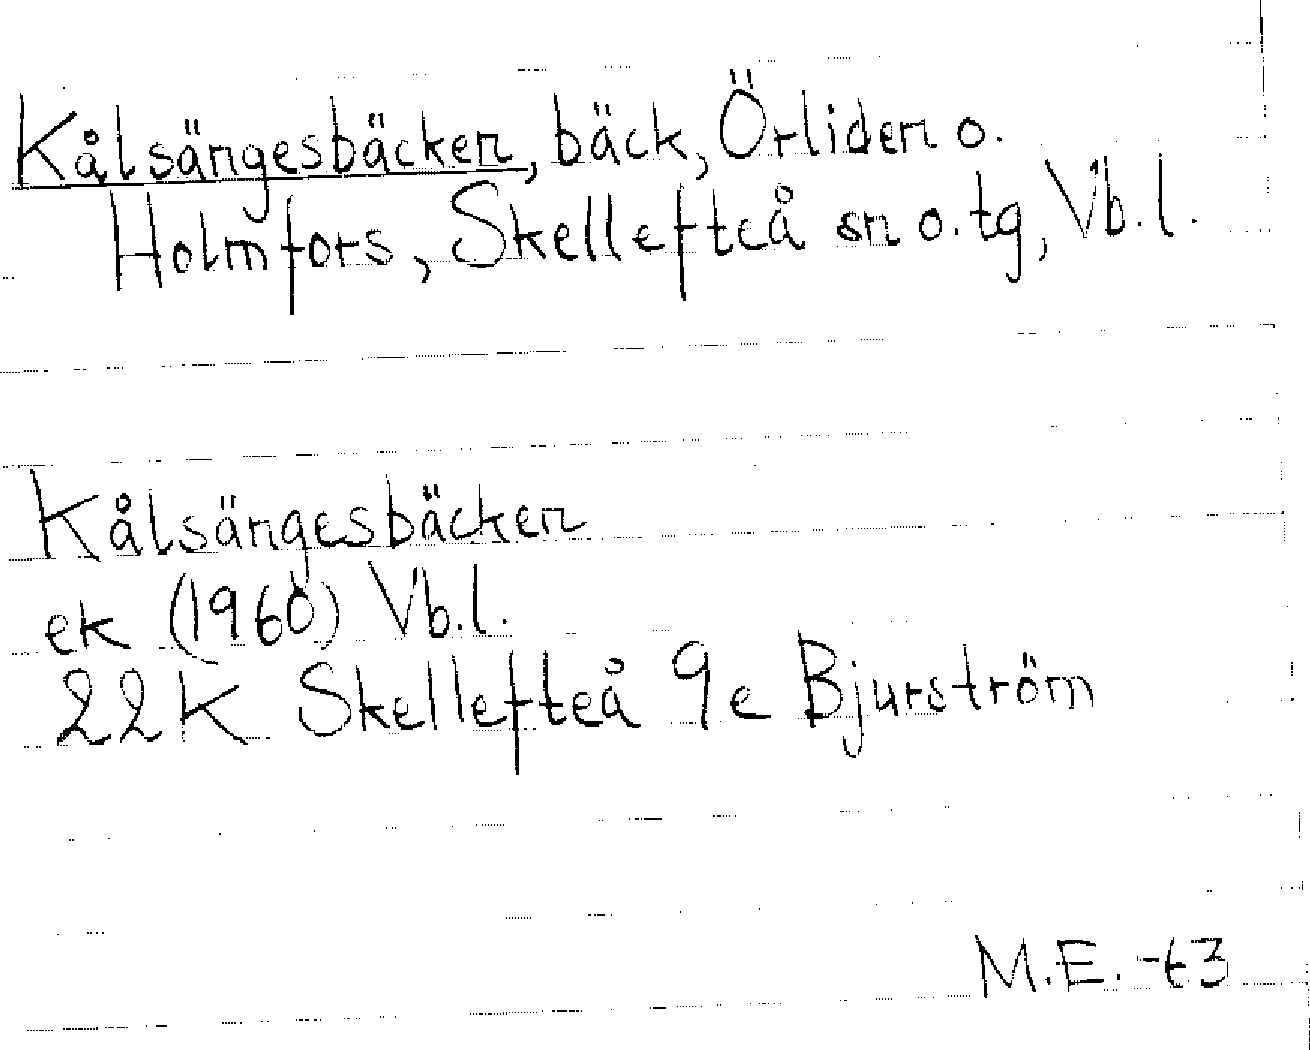 Kålsängesbäcken, bäck, Örliden o.
Holmfors, Skellefteå sn o. tg, Vb.l.
Kålsängesbäcken
ek (1960) Vb.l.
22K Skellefteå 9e Bjurström
M.E. -63